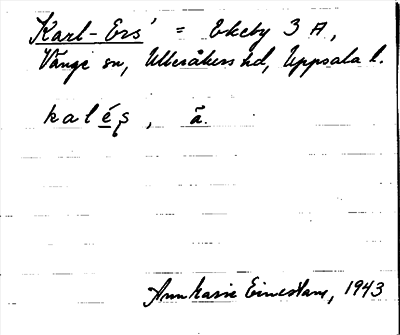 Karl-Ers' = Ekeby 3 A,
Vänge sn, Ulleråkers hd, Uppsala l.
kalés, ã.
Ann Marie, 1943